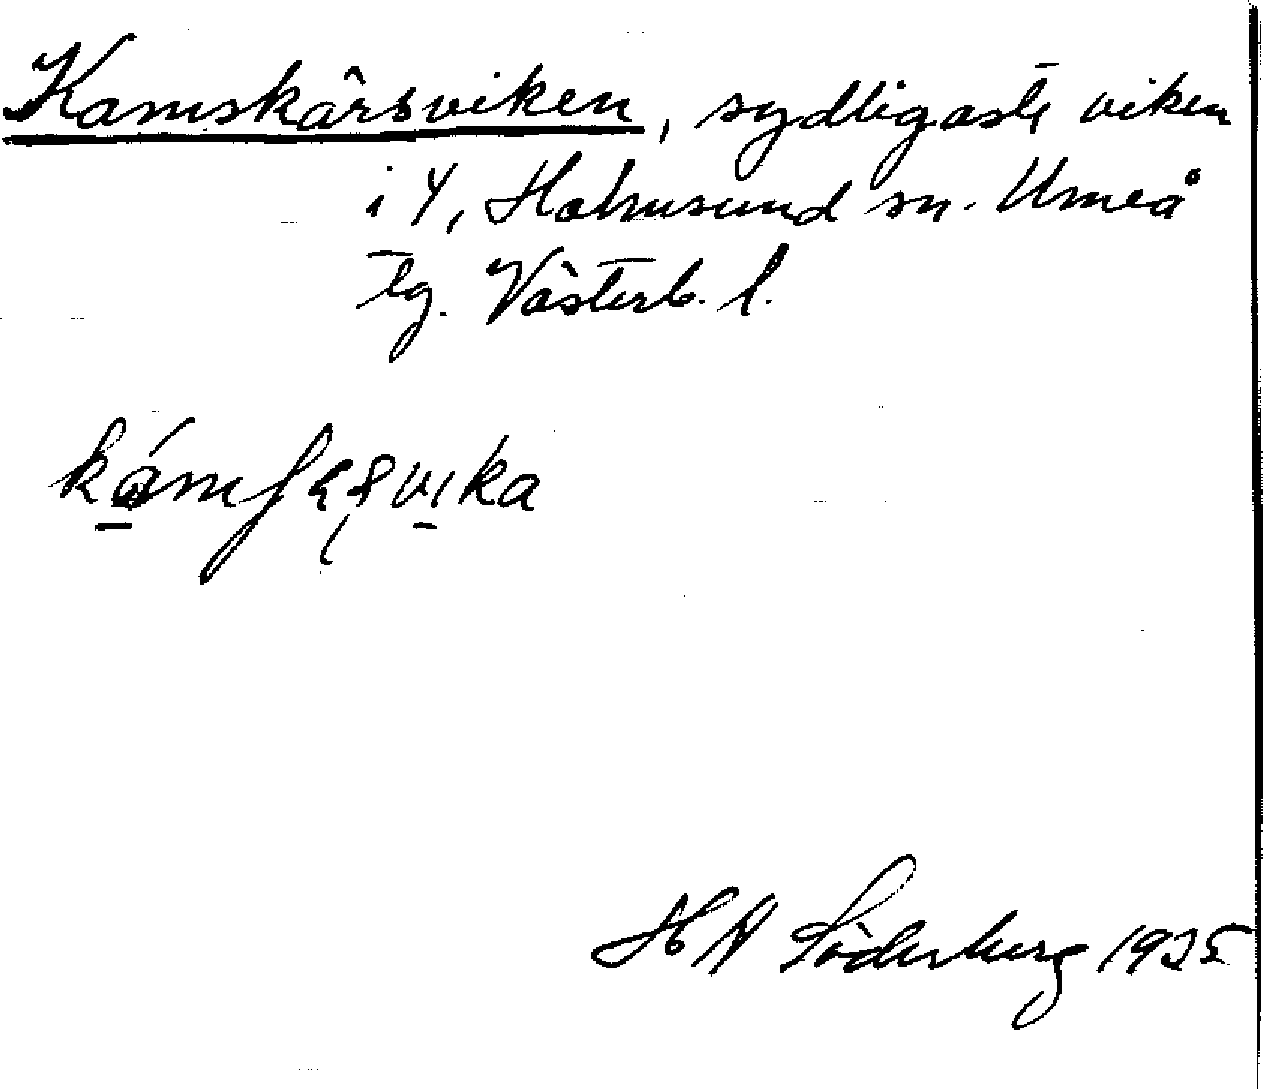 Kamskärsviken, sydligaste viken
i 4, Holmsund sn. Umeå
tg. Västerb. l.
H N Söderberg 1925